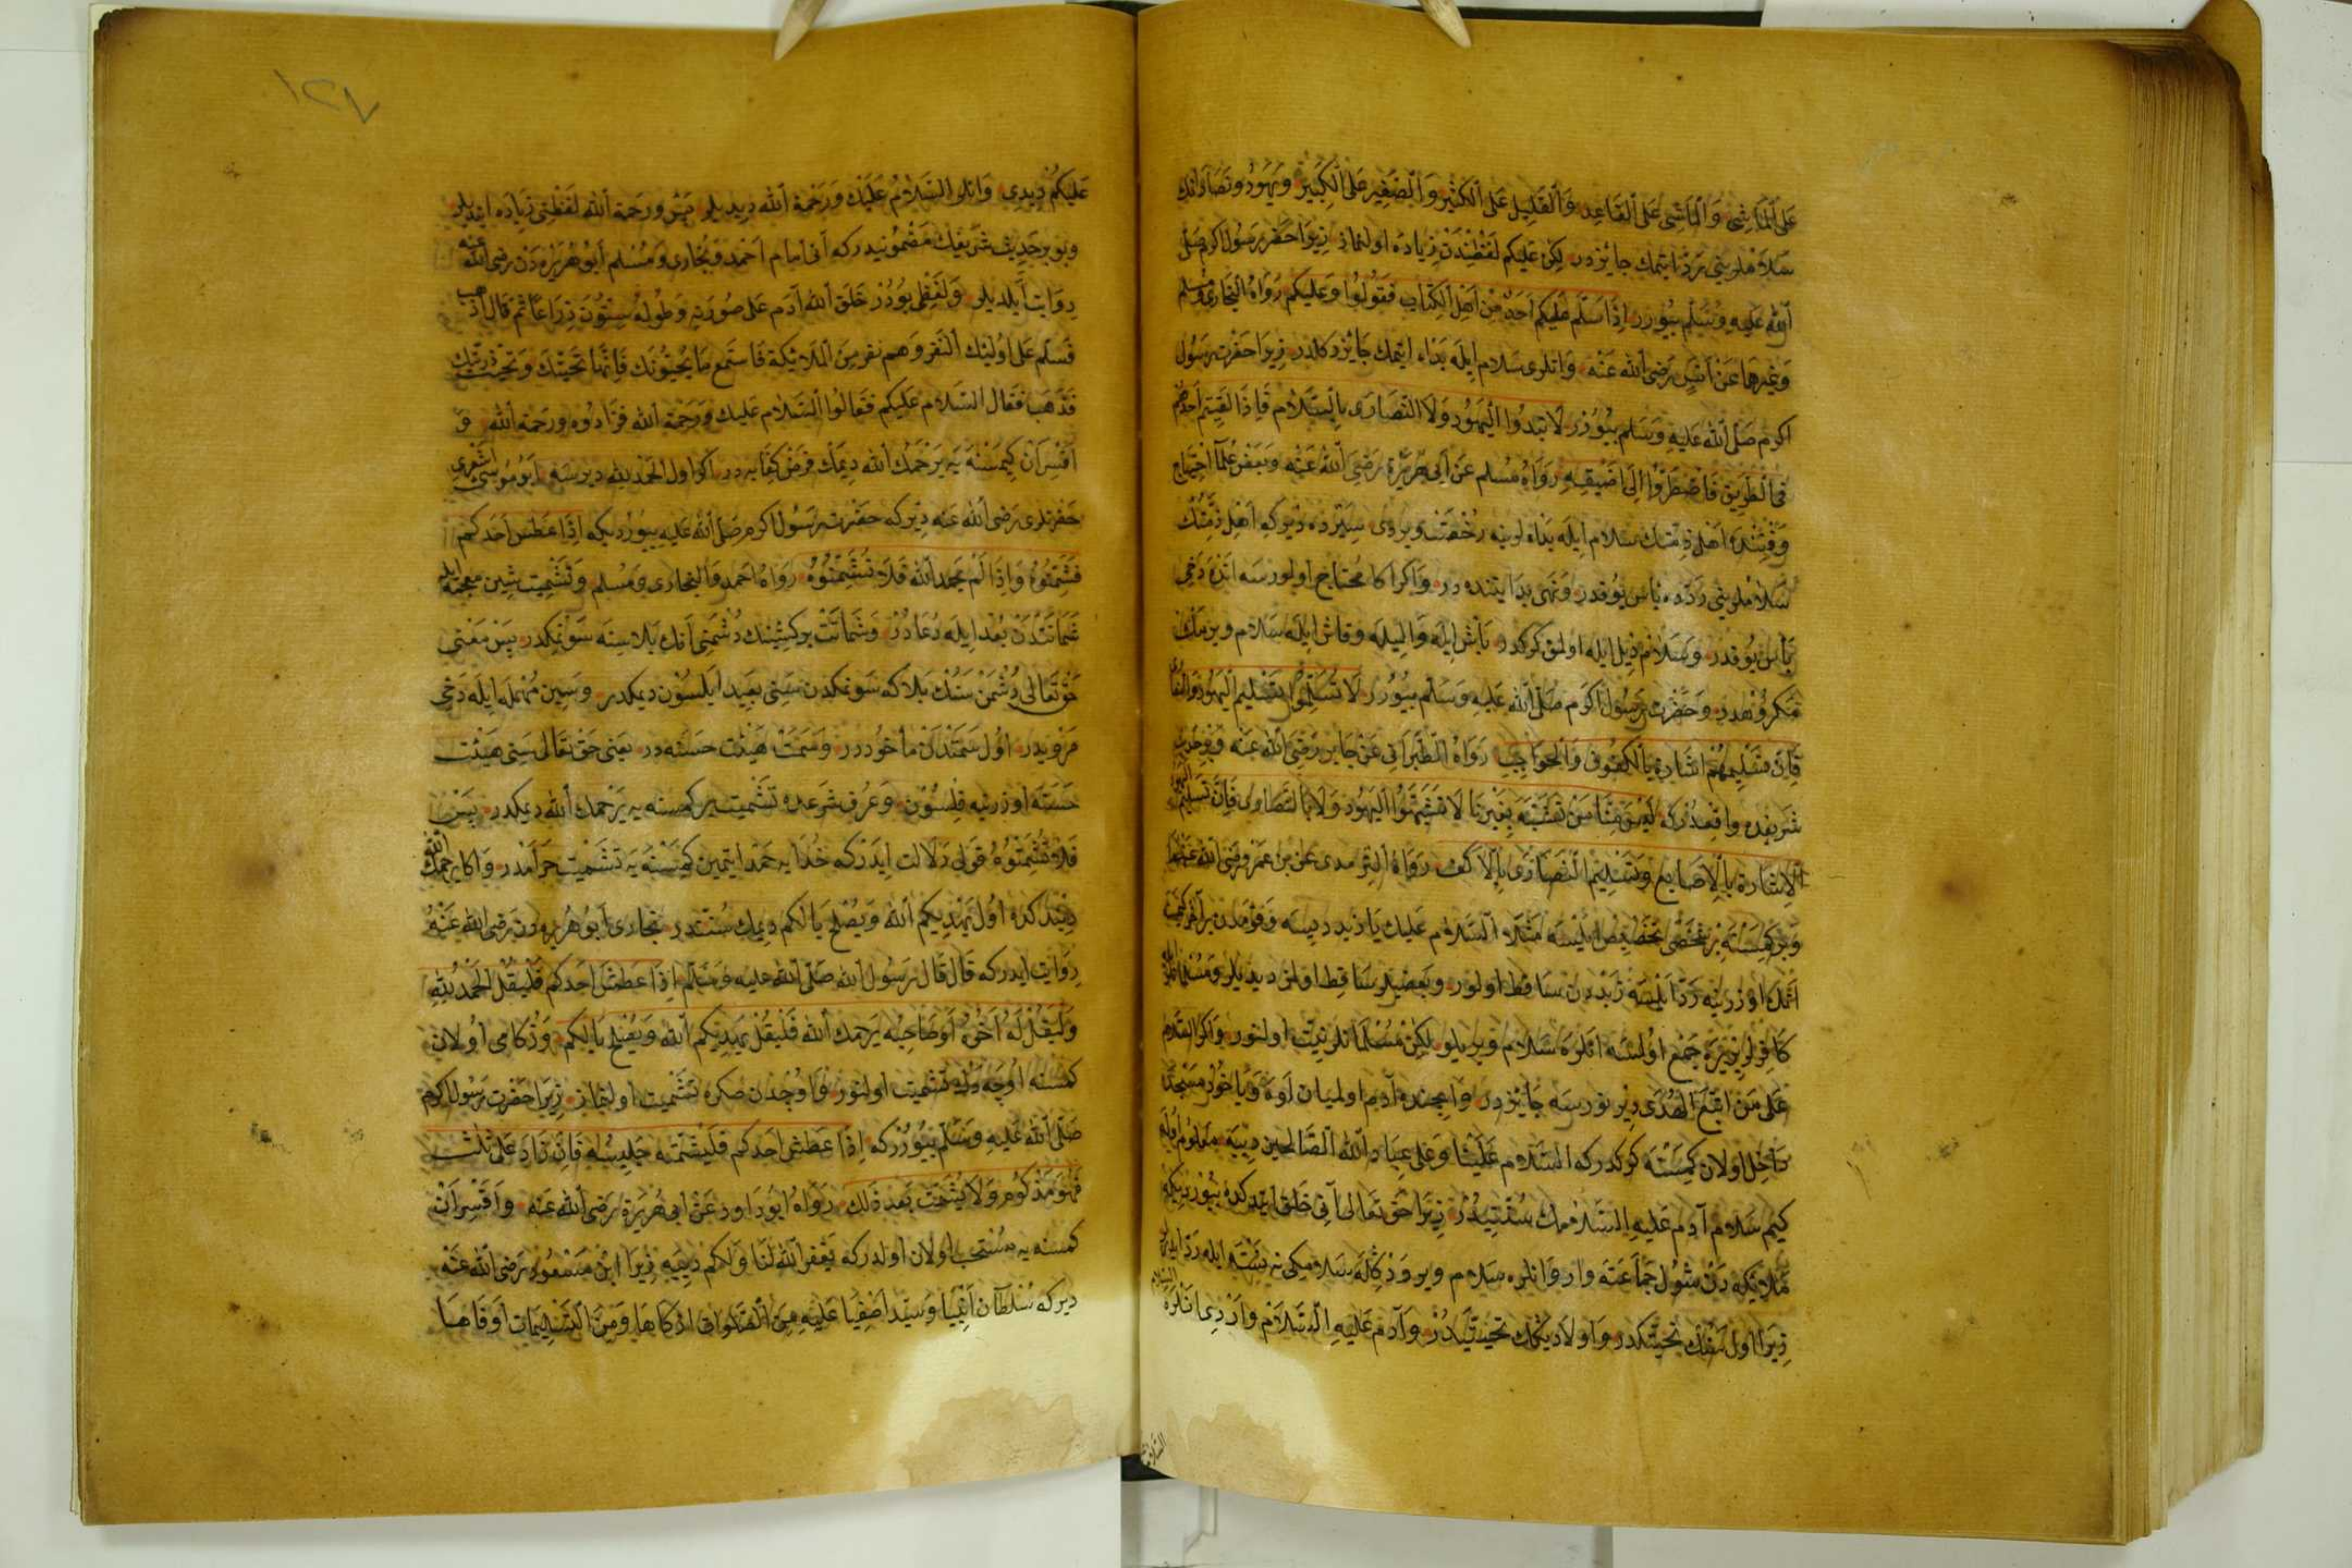 عَلَى الْمَاشِي وَالْمَاشِي عَلَى الْقَاعِدِ وَالْقَلِيلِ عَلَى الْكَثِيرِ وَالصَّغِيرِ عَلَى الْكَبِيرِ وَيَهُودُ وَنَصَارَانِكْ
سَلَامْلَرِينِي رَدْ اِيتْمَكْ جَائِزْدِرْ لكِنْ عَلَيْكُمْ لَفْظِنْدَنْ زِيَادَه اُولُنْمَازْ زِيرَا حَضْرَتِ رَسُولِ اَكْرَمْ صَلَّى
اَللّٰهُ عَلَيْهِ وَسَلَّمْ بُيُورُرْ اِذَا سَلَّمَ عَلَيْكُمْ اَحَدٌ مِنْ اَهْلِ الْكِتَابِ فَقُولُوا وَعَلَيْكُمْ رَوَاهُ الْبُخَارِى وَمُسْلِمْ
وَغَيْرُهَا عَنْ اَنَسٍ رَضِىَ اللّٰهُ عَنْهُ وَانْلَرِى سَلَامْ اِيلَه بَدَاء اِيتْمَكْ جَائِزْ دَكِلْدِرْ زِيرَا حَضْرَتِ رَسُولِ
اَكْرَمْ صَلَّى اللّٰهُ عَلَيْهِ وَسَلَّمْ بُيُورُرْ لَا تَبْدَوُا الْيَهُودَ وَلَا النَّصَارَى بِالسَّلَامِ فَاِذَا لَقِيتُمْ اَحَدَهُمْ
فِى الطَّرِيقِ فَاضْطَرُّوا اِلَى اَضْيَقِهِ رَوَاهُ مُسْلِمْ عَنْ اَبِى هُرَيْرَةَ رَضِىَ اللّٰهُ عَنْهُ وَبَعْضِ عُلَمَا اِحْتِيَاجْ
وَقْتِنْدَه اَهْلِ ذِمَّتَكْ سَلَامْ اِيلَه بَدَاء لَرِينَه رُخْصَتْ وِيرْدِى سِيَرْدَه دِيرْكِه اَهْلِ ذِمَّتِكْ
سَلَامْلَرِينِي رَدَّه بَاسْ يُوقْدِرْ وَنَهِى بَدَايَتِنْدَه دِرْ وَاكَرْ اَكَا مُحْتَاجْ اُولُورْسَه اَنْدَه دَخِى
بَاسْ يُوقْدِرْ وَسَلَامْ دِيلْ اِيلَه اُولْمَقْ كَرَكْدِرْ بَاشْ اِيلَه وَالِ اِيلَه وَقَاشْ اِيلَه سَلَامْ وِيرْمَكْ
مَكْرُوهْدِرْ وَحَضْرَتِ رَسُولِ اَكْرَمْ صَلَّى اللّٰهُ عَلَيْهِ وَسَلَّمْ بُيُورُرْ لَا تُسَلِّمُوا تَسْلِيمَ الْيَهُودِ وَالنَّصَارَى
فَاِنَّ تَسْلِيمَهُمْ اِشَارَةٌ بِالْكُفُوفِ وَالْحَوَاجِبِ رَوَاهُ الطَّبَرَانِى عَنْ جَابِرٍ رَضِىَ اللّٰهُ عَنْهُ وَبِرْ حَدِيثِ
شَرِيفِدَه وَاقِعْدُرْكِه لَيْسَ مِنَّا مَنْ تَشَبَّهَ بِغَيْرِنَا لَا تَشَبَّهُوا الْيَهُودَ وَلَا بِالنَّصَارَى فَاِنَّ تَسْلِيمَ الْيَهُودِ
اَلْاِشَارَةُ بِالْاَصَابِعِ وَتَسْلِيمَ النَّصَارَى بِالْاَكُفِّ رَوَاهُ التِّرْمِدِى عَنْ بْنِ عُمَرْ رَضِىَ اللّٰهُ عَنْهُمَا
وَبِرْ كِمْسَنَه بِرْ شَخْصِى تَخْصِيصْ اَيْلَسَه مَثَلَا اَلسَّلَامُ عَلَيْكَ يَا زَيْد دِيسَه وَقَوْمْدَنْ بِرْ آخَرْ كِمْسَه
اَنُكْ اُوزَرِينَه رَدْ اَيْلَسَه زَيْدْدَنْ سَاقِطْ اُولُورْ وَبَعْضِيلَرْ سَاقِطْ اُولْمَزْ دِيدِيلَرْ وَمُسْلِمَانْلَرْ
كَافِرْلَرْ بِيَرَه جَمْعْ اُولْسَه اَنْلَرَه سَلَامْ وِيرِيلُورْ لكِنْ مُسْلِمَانْلَرْ نِيَّتْ اُولُنُورْ وَاكَرْ السَّلَام
عَلَى مَنِ اتَّبَعَ الْهُدَى دِيرْلَرْسَه جَائِزْدِرْ وَايچِنْدَه آدَمْ اُولْمَيَانْ اَوَه وَيَاخُودْ مَسْجِدَه
دَاخِلْ اُولَانْ كِمْسَنَه كَرَكْدِرْكِه السَّلَامُ عَلَيْنَا وَعَلَى عِبَادِ اللّٰهِ الصَّالِحِينَ دِيَه مَعْلُومْ اُولَه
كِيمْ سَلَامْ آدَمْ عَلَيْهِ السَّلَامُكْ سُنَّتِيدُرْ زِيرَا حَقْ تَعَالَى آنِى خَلْقْ اِيتْدُكْدَه بُيُورْدِيكِه
مَلَائِكَه دَنْ شُولْ جَمَاعَتَه وَارْ وَانْلَرَه سَلَامْ وِيرْ وَدِكْلَه سَلَامُكِى نَه نَسْنَه اِيلَه رَدْ اِيدَرْلَرْ
زِيرَا اُولْ سَنُكْ تَحِيَّتُكْدِرْ وَاَوْلَادِيكُكْ تَحِيَّتِيدُرْ وَآدَمْ عَلَيْهِ السَّلَامْ وَارْدِى اَنْلَرَه السلام
السلام
١٢٧
عَلَيْكُمْ دِيدِى وَانْلَرْ السَّلَامُ عَلَيْكَ وَرَحْمَةُ اللّٰه دِيدِيلَرْ پَسْ وَرَحْمَةُ اللّٰه لَفْظِنِى زِيَادَه اِيتْدِيلَرْ
وَبُو بِرْ حَدِيثِ شَرِيفُكْ مَضْمُونِيدِرْكِه آنِى اِمَامِ اَحْمَدْ وَبُخَارِى وَمُسْلِمْ اَبُو هُرَيْرَه دَنْ رَضِىَ اللّٰهُ عَنْهُ
رِوَايَتْ اَيْلَدِيلَرْ وَلَفْظِى بُودُرْ خَلَقَ اللّٰهُ آدَمَ عَلَى صُورَتِهِ وَطُولُهُ سِتُّونَ ذِرَاعًا ثُمَّ قَالَ اذْهَبْ
فَسَلِّمْ عَلَى اُولَئِكَ النَّفَرِ وَهُمْ نَفَرٌ مِنَ الْمَلَائِكَةِ فَاسْتَمِعْ مَا يُحَيُّونَكَ فَاِنَّهَا تَحِيَّتُكَ وَتَحِيَّتُ ذُرِّيَّتِكَ
فَذَهَبَ فَقَالَ السَّلَامُ عَلَيْكُمْ فَقَالُوا اَلسَّلَامُ عَلَيْكَ وَرَحْمَةُ اللّٰهِ فَزَادُوهُ وَرَحْمَةُ اللّٰهِ وَ
اَقْسِرَانْ كِمْسَنَه يَه يَرْحَمُكَ اللّٰه دِيمَكْ فَرْضِ كِفَايَه دِرْ اَكَرْ اُولْ اَلْحَمْدُ لِلّٰه دِيرْسَه اَبُو مُوسَى اَشْعَرِى
حَضْرَتْلَرِى رَضِىَ اللّٰهُ عَنْهُ دِيرْكِه حَضْرَتِ رَسُولِ اَكْرَمْ صَلَّى اللّٰهُ عَلَيْهِ بُيُورْدِيكِه اِذَا عَطَسَ اَحَدُكُمْ
فَشَمِّتُوهُ وَاِذَا لَمْ يَحْمَدِ اللّٰهَ فَلَا تُشَمِّتُوهُ رَوَاهُ اَحْمَدْ وَالْبُخَارِى وَمُسْلِمْ وَتَشْمِيتْ شِينِ مُعْجَمَه اِيلَه
شَمَاتَتْدَنْ بُعْدْ اِيلَه دُعَادُرْ وَشَمَاتَتْ بِرْ كِشِينُكْ دُشْمَنِى آنُكْ بَلَاسِنَه سَوِنْمَكْدِرْ پَسْ مَعْنَى
حَقْ تَعَالَى دُشْمَنْ سَنُكْ بَلَاكَه سَوِنْمَكْدَنْ سَنِى بَعِيدْ اَيْلَسُونْ دِيمَكْدِرْ وَسِينِ مُهْمَلَه اِيلَه دَخِى
مَرْوِيدِرْ اُولْ سَمْتْدَنْ مَأْخُوذْدِرْ وَسَمْتْ هَيْئَتِ حَسَنَه دِرْ يَعْنِى حَقْ تَعَالَى سَنِى هَيْئَتِ
حَسَنَه اُوزَرِينَه قِلْسُونْ وَعُرْفِ شَرْعِدَه تَشْمِيتْ بِرْ كِمْسَنَه يَه يَرْحَمُكَ اللّٰه دِيمَكْدِرْ پَسْ
فَلَا تُشَمِّتُوهُ قَوْلِى دَلَالَتْ اِيدَرْكِه خُدَايَه حَمْدْ اِيتْمِينْ كِمْسَنَه يَه تَشْمِيتْ حَرَامْدِرْ وَاكَا يَرْحَمُكَ اللّٰه
دِينِدِكْدَه اُولْ يَهْدِيكُمُ اللّٰه وَيُصْلِحُ بَالَكُمْ دِيمَكْ سُنَّتْدِرْ بُخَارِى اَبُو هُرَيْرَه دَنْ رَضِىَ اللّٰهُ عَنْهُ
رِوَايَتْ اِيدَرْكِه قَالَ قَالَ رَسُولُ اللّٰهِ صَلَّى اللّٰهُ عَلَيْهِ وَسَلَّمَ اِذَا عَطَسَ اَحَدُكُمْ فَلْيَقُلِ الْحَمْدُ لِلّٰهِ
وَلْيَقُلْ لَهُ اَخُوهُ اَوْ صَاحِبُهُ يَرْحَمُكَ اللّٰهُ فَلْيَقُلْ يَهْدِيكُمُ اللّٰهُ وَيُصْلِحُ بَالَكُمْ وَزُكَامِى اُولَانْ
كِمْسَنَه اُوچَه دَكْ تَشْمِيتْ اُولُنُورْ وَاُوچْدَنْ صُكْرَه تَشْمِيتْ اُولُنْمَازْ زِيرَا حَضْرَتِ رَسُولِ اَكْرَمْ
صَلَّى اللّٰهُ عَلَيْهِ وَسَلَّمْ بُيُورُرْكِه اِذَا عَطَسَ اَحَدُكُمْ فَلْيُشَمِّتْهُ جَلِيسُهُ فَاِنْ زَادَ عَلَى ثَلَاثٍ
فَهُوَ مَزْكُومٌ وَلَا يُشَمَّتُ بَعْدَ ذَلِكَ رَوَاهُ اَبُو دَاوُدْ عَنْ اَبِى هُرَيْرَةَ رَضِىَ اللّٰهُ عَنْهُ وَاَقْسِرَانْ
كِمْسَنَه يَه مُسْتَحَبْ اُولَانْ اُولْدِرْكِه يَغْفِرُ اللّٰهُ لَنَا وَلَكُمْ دِيَه زِيرَا ابْنِ مَسْعُودْ رَضِىَ اللّٰهُ عَنْهُ
دِيرْكِه سُلْطَانِ اَنْبِيَا وَسَيِّدِ اَصْفِيَا عَلَيْهِ مِنَ الصَّلَوَاتِ اَزْكَاهَا وَمِنَ التَّسْلِيمَاتِ اَوْفَاهَا